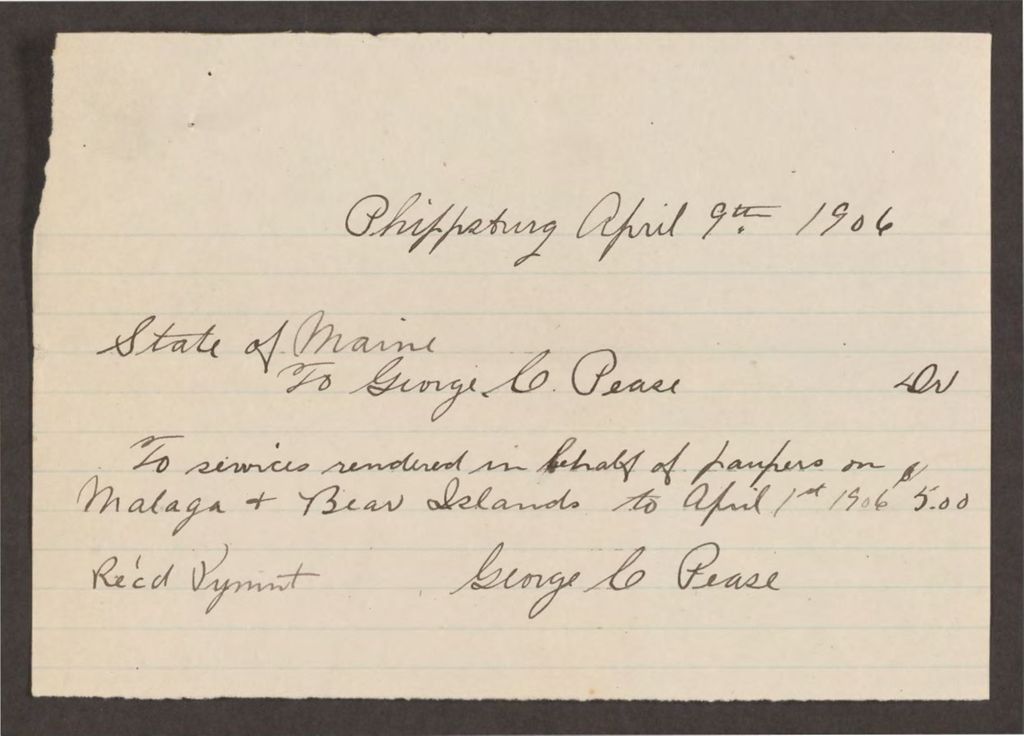 Phippsburg April 9th. 1906
State of Maine
To George C. Pease Dr
To services rendered in behalf of paupers on
Malaga + Bear Islands to April 1st 1906 $5.00
Rec'd Pymnt George C Pease